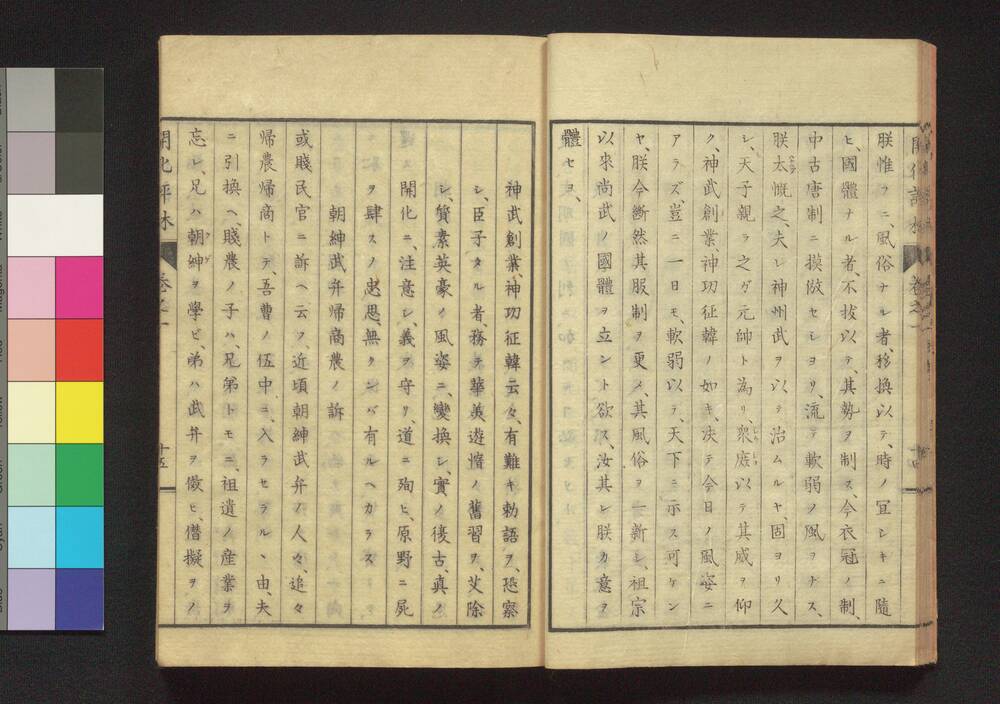 朕惟フニ、風俗ナル者、移換以テ、時ノ冝シキニ隨
ヒ、國體ナル者、不抜以テ、其勢ヲ制ス、今衣冠ノ制、
中古唐制ニ摸倣セシヨリ、流テ軟弱ノ風ヲナス、
朕太慨之、夫レ神州武ヲ以テ治ムルヤ、固ヨリ久
シ、天子親ラ之ガ元帥ト為リ、衆庶以テ其威ヲ仰
ク、神武創業、神功征韓ノ如キ、决テ今日ノ風姿ニ
アラズ、豈ニ一日モ、軟弱以テ、天下ニ示ス可ケン
ヤ、朕今断然其服制ヲ更メ、其風俗ヲ一新シ、祖宗
以来尚武ノ國體ヲ立ント欲ス、汝其レ朕カ意ヲ
體セヨ、
神武創業、神功征韓云々、有難キ勅語ヲ、恐察
シ、臣子タル者、務テ華美、遊惰ノ舊習ヲ、艾除
シ、質素英豪イ風姿ニ、變換シ、實ノ復古、真ノ
開化ニ、注意シ、義ヲ守リ、道ニ殉ヒ、原野ニ屍
ヲ肆スノ忠思、無クンバ有ルヘカラズ
朝紳武弁帰商農ノ訴
或賤民、官ニ訴ヘ云フ、近頃朝紳武弁ノ人々、追々
帰農帰商トテ、吾曹ノ伍中ニ、入ラセラルヽ由、夫
ニ引換ヘ、賤農ノ子ハ、兄弟トモニ、祖遺ノ産業ヲ
忘レ、兄ハ朝紳ヲ學ビ、弟ハ武弁ヲ傚ヒ、僭擬ヲノ
開化評林
巻之一
十五